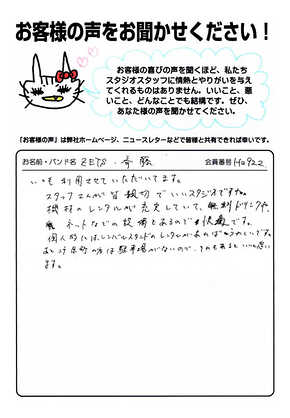 お客様の声をお聞かせください！
お客様の喜びの声を聞くほど、私たち
スタジオスタッフに情熱とやりがいを与え
てくれるものはありません。いいこと、悪
いこと、どんなことでも結構です。ぜひ、
あなた様の声を聞かせてください。
「お客様の声」は弊社ホームページ、ニュースレターなどで皆様と共有できれば幸いです。
お名前・バンド名 ZETS 斉藤 会員番号 H0922
いつも利用させていただいてます。
スタッフさんが皆親切でいいスタジオですね。
機材のレンタルが充実していて、無料ドリンクや、
ネットなどの設備もあるので快適です。
個人的にはシンバルスタンドのレンタルがあればうれしいです。
の方は駐車場がないので、そのもあるといいと思い
ます。